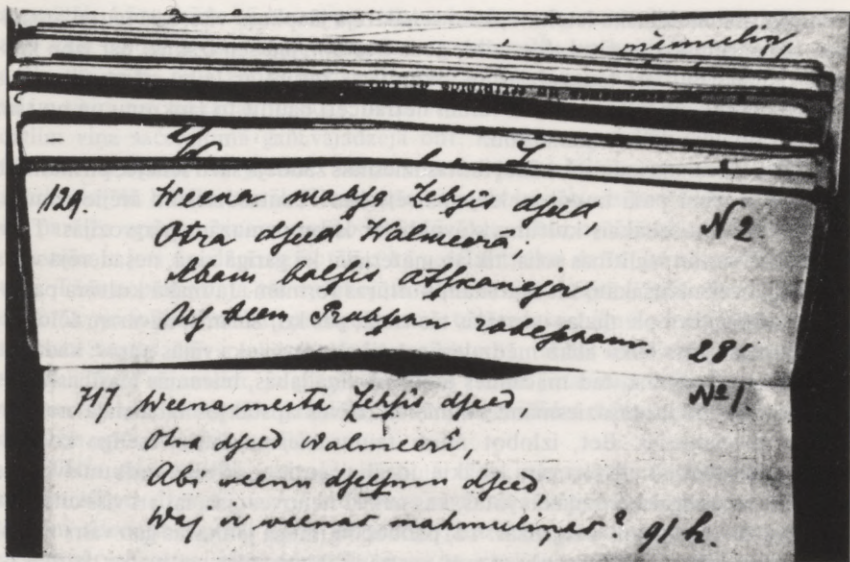 129. Weena mahſa Zehſis dſeed N 2.
Otra dſeed Walmeerâ
Abam balſis atſkaneja
Uſ teem robeſcham 28'
717. Weena meita Zehſis dſeed № 1.
Otra dſeed Walmeerî,
Abi weenu dſeeſmu dſeed,
Waj ir weenas mahmulinas? 91 h.